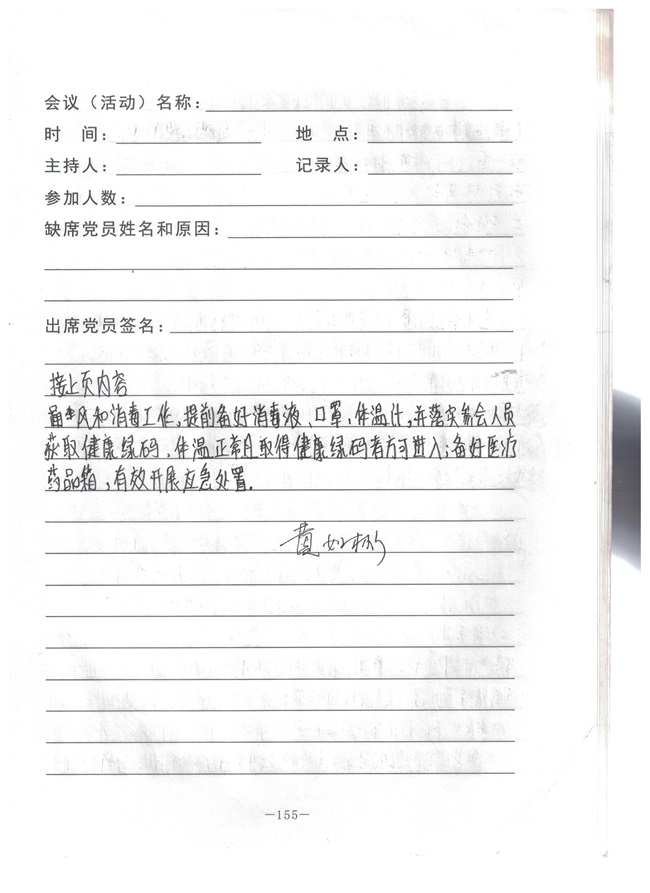 会议（活动）名称：
时 间： 地 点：
主持人： 记录人：
参加人数：
缺席党员姓名和原因：
出席党员签名：
接上页内容
通风和消毒工作，提前备好消毒液、口罩、体温计，并落实参会人员
获取健康绿码，体温正常且取得健康绿码者方可进入；备好医疗
药品箱，有效开展应急处置.
黄如彬
—155—